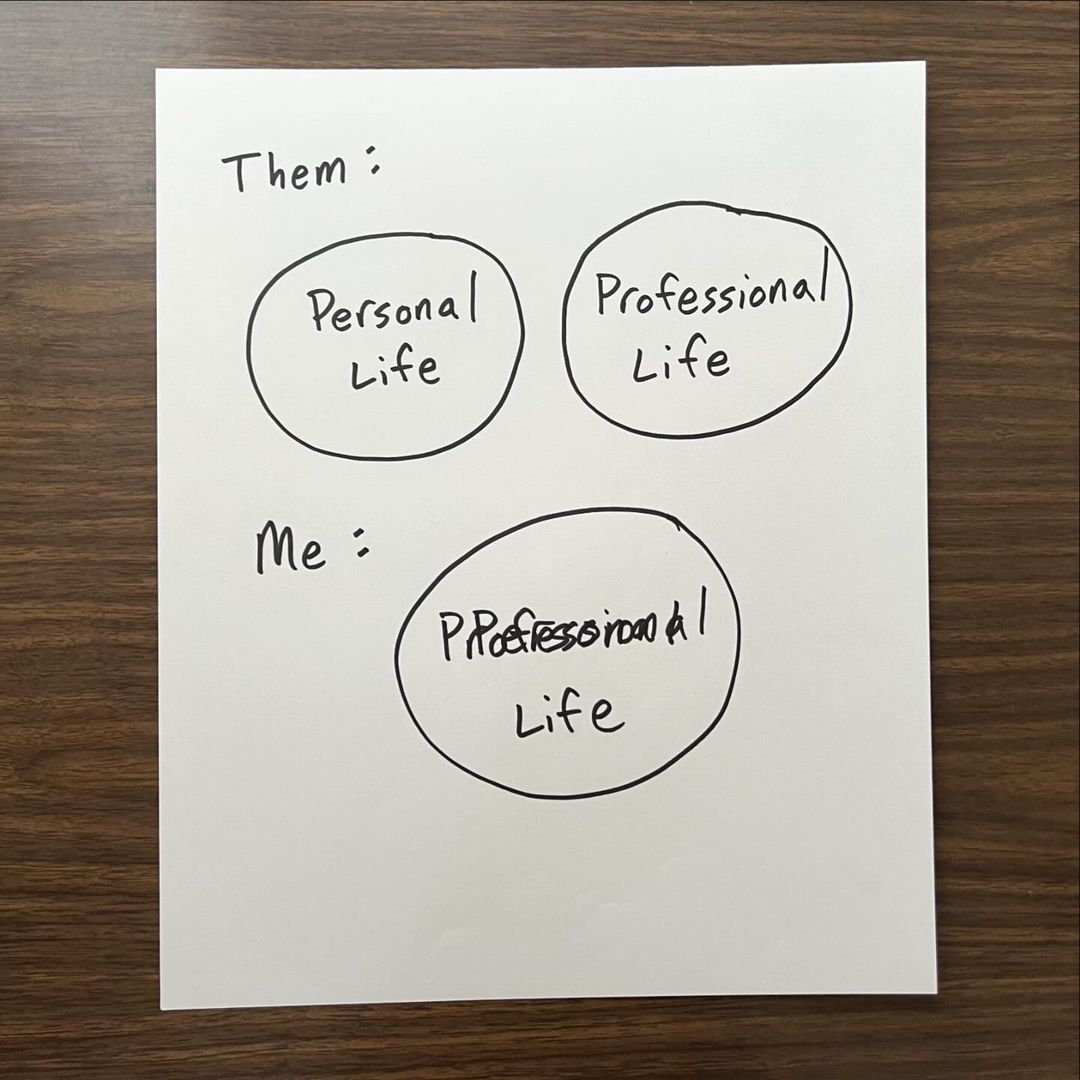 Them :
Personal
Life
Professional
Life
Me :
Life